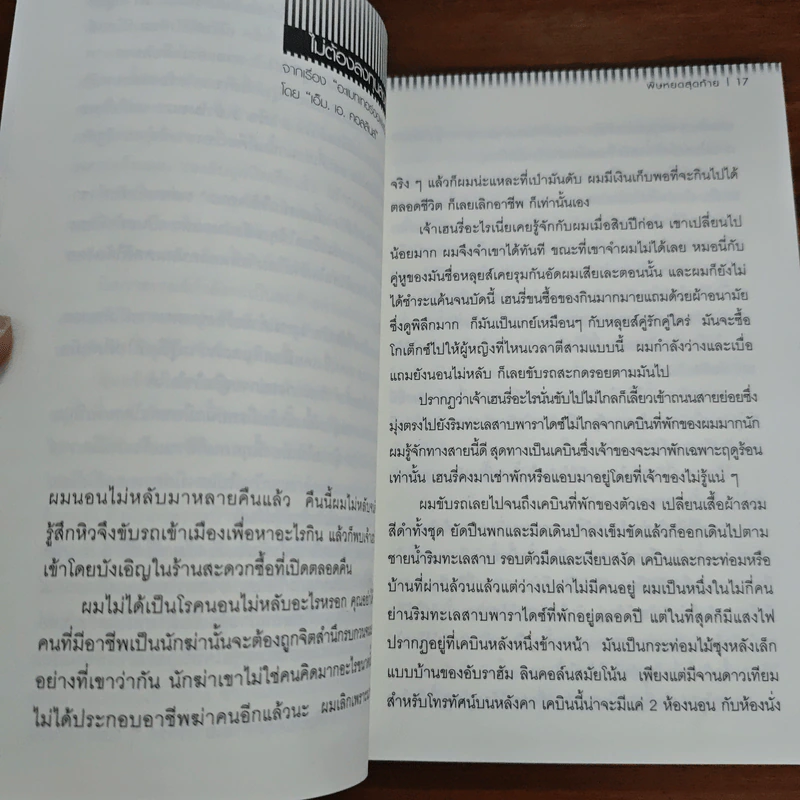 ไม่ต้องลง
จากเรื่อง
โดย "เอ็ม. เอ. คอลลินส์"
ผมนอนไม่หลับมาหลายคืนแล้ว คืนนี้ผมไม่หลับ
รู้สึกหิวจึงขับรถเข้าเมืองเพื่อหาอะไรกิน แล้วก็พบ
เข้าโดยบังเอิญในร้านสะดวกซื้อที่เปิดตลอดคืน
ผมไม่ได้เป็นโรคนอนไม่หลับอะไรหรอก
คนที่มีอาชีพเป็นนักฆ่านั้นจะต้องถูกจิตสำนึกรบกวน
อย่างที่เขาว่ากัน นักฆ่าเขาไม่ใช่คนคิดมากอะไร
ไม่ได้ประกอบอาชีพฆ่าคนอีกแล้วนะ ผมเลิกเพราะ
พิษหยดสุดท้าย | 17
จริง ๆ แล้วก็ผมน่ะแหละที่เป่ามันดับ ผมมีเงินเก็บพอที่จะกินไปได้
ตลอดชีวิต ก็เลยเลิกอาชีพ ก็เท่านั้นเอง
เจ้าเฮนรี่อะไรเนี่ยเคยรู้จักกับผมเมื่อสิบปีก่อน เขาเปลี่ยนไป
น้อยมาก ผมจึงจำเขาได้ทันที ขณะที่เขาจำผมไม่ได้เลย หมอนี่กับ
คู่หูของมันชื่อหลุยส์เคยรุมกันอัดผมเสียเละตอนนั้น และผมก็ยังไม่
ได้ชำระแค้นจนบัดนี้ เฮนรี่ขนซื้อของกินมากมายแถมด้วยผ้าอนามัย
ซึ่งดูพิลึกมาก ก็มันเป็นเกย์เหมือนๆ กับหลุยส์คู่รักคู่ใคร่ มันจะซื้อ
โกเต็กซ์ไปให้ผู้หญิงที่ไหนเวลาตีสามแบบนี้ ผมกำลังว่างและเบื่อ
แถมยังนอนไม่หลับ ก็เลยขับรถสะกดรอยตามมันไป
ปรากฏว่าเจ้าเฮนรี่อะไรนั่นขับไปไม่ไกลก็เลี้ยวเข้าถนนสายย่อยซึ่ง
มุ่งตรงไปยังริมทะเลสาบพาราไดซ์ไม่ไกลจากเคบินที่พักของผมมากนัก
ผมรู้จักทางสายนี้ดี สุดทางเป็นเคบินซึ่งเจ้าของจะมาพักเฉพาะฤดูร้อน
เท่านั้น เฮนรี่คงมาเช่าพักหรือแอบมาอยู่โดยที่เจ้าของไม่รู้แน่ ๆ
ผมขับรถเลยไปจนถึงเคบินที่พักของตัวเอง เปลี่ยนเสื้อผ้าสวม
สีดำทั้งชุด ยัดปืนพกและมีดเดินป่าลงเข็มขัดแล้วก็ออกเดินไปตาม
ชายน้ำริมทะเลสาบ รอบตัวมืดและเงียบสงัด เคบินและกระท่อมหรือ
บ้านที่ผ่านล้วนแล้วแต่ว่างเปล่าไม่มีคนอยู่ ผมเป็นหนึ่งในไม่กี่คน
ย่านริมทะเลสาบพาราไดซ์ที่พักอยู่ตลอดปี แต่ในที่สุดก็มีแสงไฟ
ปรากฏอยู่ที่เคบินหลังหนึ่งข้างหน้า มันเป็นกระท่อมไม้ซุงหลังเล็ก
แบบบ้านของอับราฮัม ลินคอล์นสมัยโน้น เพียงแต่มีจานดาวเทียม
สำหรับโทรทัศน์บนหลังคา เคบินนี้น่าจะมีแค่ 2 ห้องนอน กับห้องนั่ง